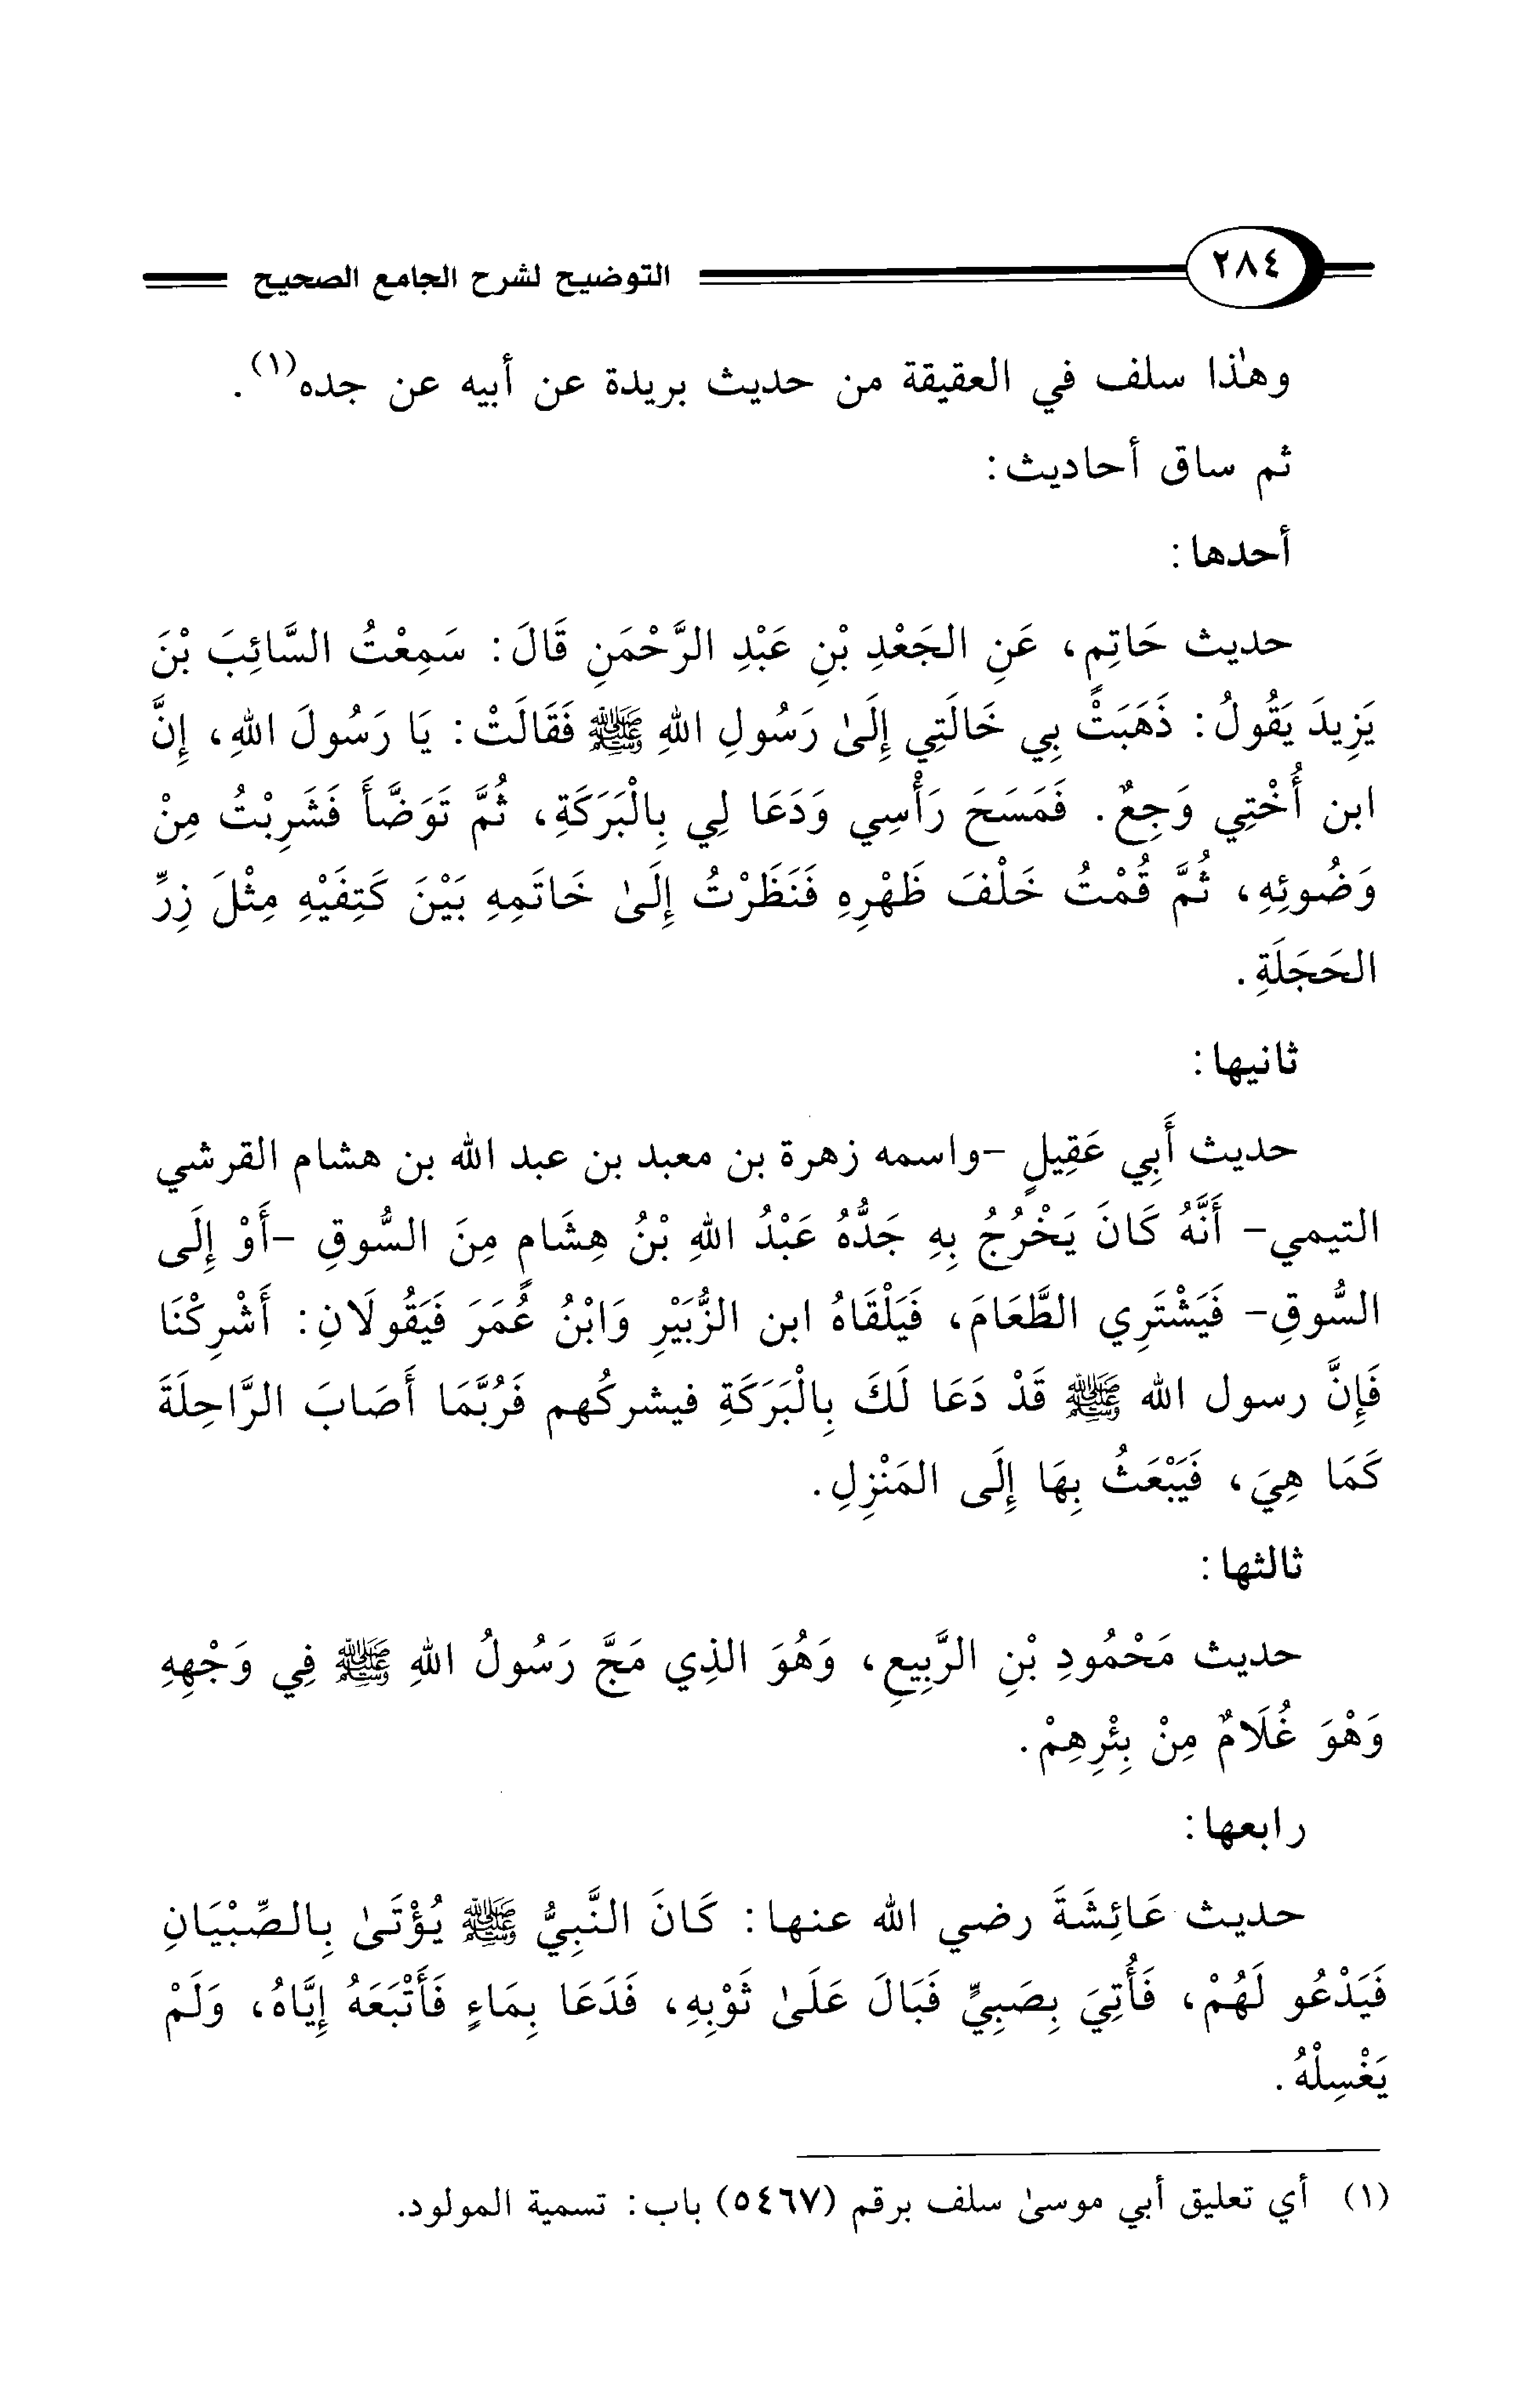 ٢٨٤ التوضيح لشرح الجامع الصحيح
وهذا سلف في العقيقة من حديث بريدة عن أبيه عن جده(١).
ثم ساق أحاديث:
أحدها:
حديث حَاتِمٍ، عَنِ الجَعْدِ بْنِ عَبْدِ الرَّحْمَنِ قَالَ: سَمِعْتُ السَّائِبَ بْنَ
يَزِيدَ يَقُولُ: ذَهَبَتْ بِي خَالَتِي إِلَىٰ رَسُولِ اللهِ ﷺ فَقَالَتْ: يَا رَسُولَ اللهِ، إِنَّ
ابن أُخْتِي وَجِعٌ. فَمَسَحَ رَأْسِي وَدَعَا لِي بِالْبَرَكَةِ، ثُمَّ تَوَضَّأَ فَشَرِبْتُ مِنْ
وَضُوئِهِ، ثُمَّ قُمْتُ خَلْفَ ظَهْرِهِ فَنَظَرْتُ إِلَىٰ خَاتَمِهِ بَيْنَ كَتِفَيْهِ مِثْلَ زِرِّ
الحَجَلَةِ.
ثانيها:
حديث أَبِي عَقِيلٍ -واسمه زهرة بن معبد بن عبد الله بن هشام القرشي
التيمي- أَنَّهُ كَانَ يَخْرُجُ بِهِ جَدُّهُ عَبْدُ اللهِ بْنُ هِشَامٍ مِنَ السُّوقِ -أَوْ إِلَى
السُّوقِ- فَيَشْتَرِي الطَّعَامَ، فَيَلْقَاهُ ابن الزُّبَيْرِ وَابْنُ عُمَرَ فَيَقُولَانِ: أَشْرِكْنَا
فَإِنَّ رسول الله ﷺ قَدْ دَعَا لَكَ بِالْبَرَكَةِ فيشركُهم فَرُبَّمَا أَصَابَ الرَّاحِلَةَ
كَمَا هِيَ، فَيَبْعَثُ بِهَا إِلَى المَنْزِلِ.
ثالثها:
حديث مَحْمُودِ بْنِ الرَّبِيعِ، وَهُوَ الذِي مَجَّ رَسُولُ اللهِ ﷺ فِي وَجْهِهِ
وَهْوَ غُلَامٌ مِنْ بِئْرِهِمْ.
رابعها:
حديث عَائِشَةَ رضي الله عنها: كَانَ النَّبِيُّ ﷺ يُؤْتَىٰ بِالصِّبْيَانِ
فَيَدْعُو لَهُمْ، فَأُتِيَ بِصَبِيٍّ فَبَالَ عَلَىٰ ثَوْبِهِ، فَدَعَا بِمَاءٍ فَأَتْبَعَهُ إِيَّاهُ، وَلَمْ
يَغْسِلْهُ.
(١) أي تعليق أبي موسىٰ سلف برقم (٥٤٦٧) باب: تسمية المولود.